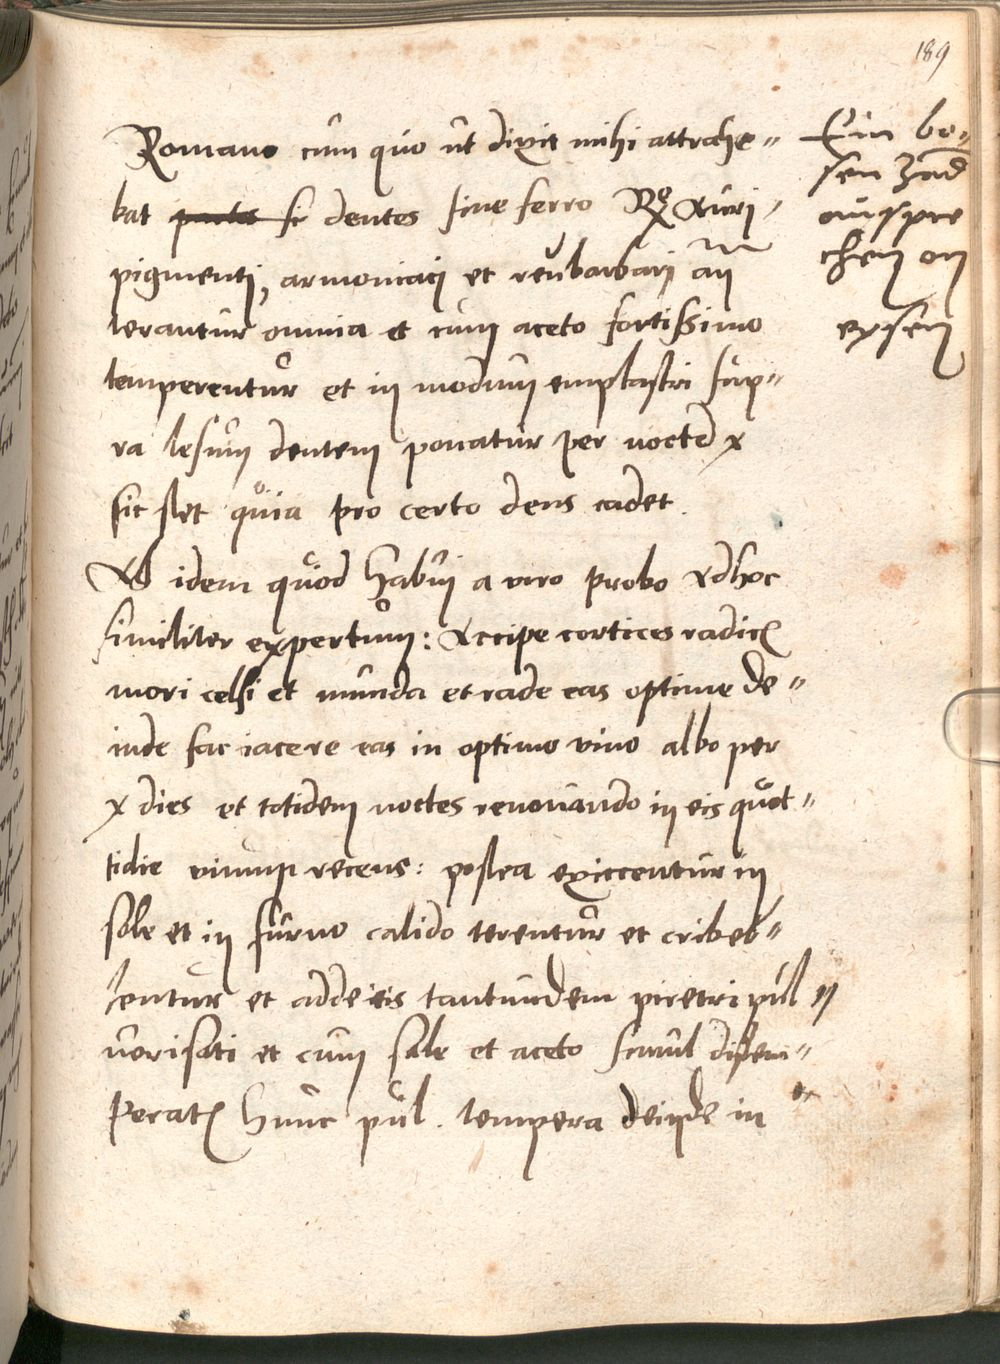 189
Romano cum quo ut dixit mihi attrahe"
bat partes si dentes sine ferro Rx Auri,
pigmenti, armoniaci et reubarbari an
terantur omnia et cum aceto fortissimo
temperentur et in modum emplastri sup"
ra lesum dentem ponatur per nocte x
sic stet quia pro certo dens cadet.
Ad idem quod habui a viro probo Adhoc
similiter expertum: Accipe cortices radic
mori celsi et munda et rade eas optime de"
inde fac iacere eas in optimo vino albo per
x dies et totidem noctes renouando in eis quot"
tidie vinum recens: postea exiccentur in
sole et in furno calido terentur et cribel"
lentur et adde eis tantundem piretri pul"
uerisati et cum sale et aceto simul distem"
perat hunc pul. tempera deinde in
Ein bo"
sen Zand
ausspre
chen on
eysen